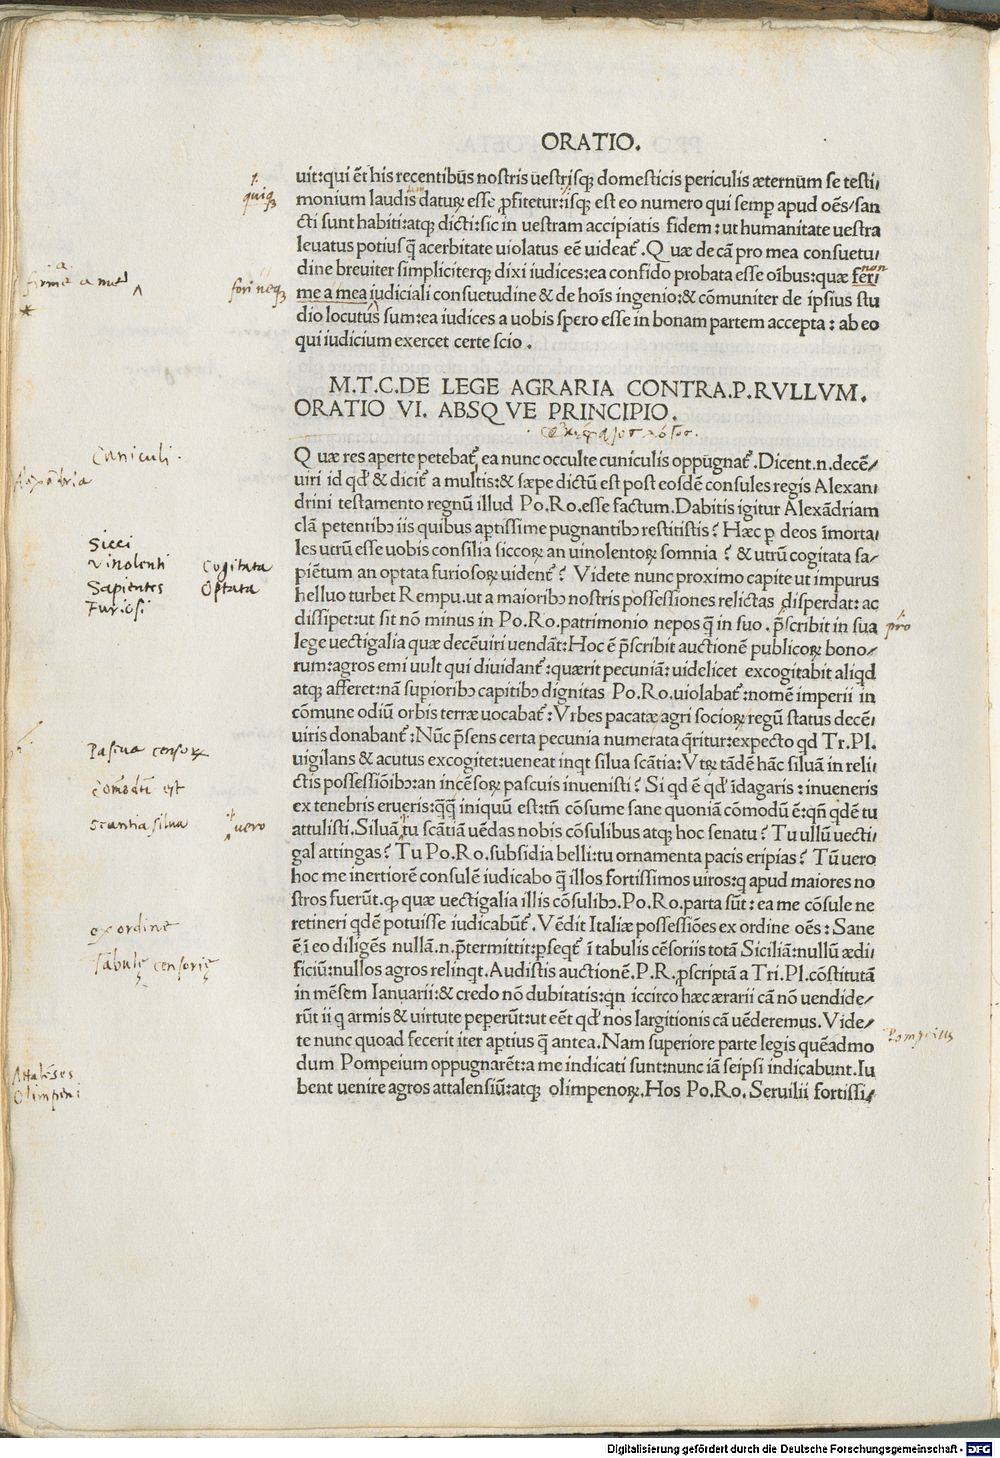 ORATIO.
uit:qui ēt his recentibus nostris uestrisqꝫ domesticis periculis æternum se testi⸗
monium laudis daturꝝ esse ꝓfitetur:isqꝫ est eo numero qui semp̱ apud oēs/san
cti sunt habiti:atqꝫ dicti:sic in uestram accipiatis fidem:ut humanitate uestra
leuatus potius q̄ acerbitate uiolatus eē uideat᷑.Quæ de cā pro mea consuetu⸗
dine breuiter simpliciterqꝫ dixi iudices:ea confido probata esse oībus:quæ feri
me a mea iudiciali consuetudine & de hoīs ingenio:& cōmuniter de ipsius stu
dio locutus sum:ea iudices a uobis spero esse in bonam partem accepta:ab eo
qui iudicium exercet certe scio.
quiqꝫ
non
fori neqꝫ
M.T.C.DE LEGE AGRARIA CONTRA.P.RVLLVM.
ORATIO VI. ABSQVE PRINCIPIO.
Quæ res aperte petebat᷑ ea nunc occulte cuniculis oppugnat᷑.Dicent.n.decē⸗
uiri id qd̄ & dicit᷑ a multis:& sæpe dictū est post eosdē consules regis Alexan⸗
drini testamento regnū illud Po.Ro.esse factum.Dabitis igitur Alexādriam
clā petentibꝰ iis quibus apertissime pugnantibꝰ restitistis? Hæc p̱ deos īmorta⸗
les utrū esse uobis consilia siccoꝝ an uinolentoꝝ somnia? & utrū cogitata sa⸗
piētum an optata furiosoꝝ uident᷑? Videte nunc proximo capite ut impurus
helluo turbet Rempu.ut a maioribꝰ nostris possessiones relictas disperdat:ac
dissipet:ut sit nō minus in Po.Ro.patrimonio nepos q̄ in suo.p̄scribit in sua
lege uectigalia quæ decēuiri uendāt:Hoc ē p̄scribit auctionē publicoꝝ bono⸗
rum:agros emi uult qui diuidant᷑:quærit pecuniā:uidelicet excogitabit aliqd
atqꝫ afferet:nā sup̱ioribꝰ capitibꝰ dignitas Po.Ro.uiolabat᷑:nomē imperii in
cōmune odiū orbis terræ uocabat᷑:Vrbes pacatæ agri socioꝝ regū status decē⸗
uiris donabant᷑:Nūc p̄sens certa pecunia numerata q̄ritur:expecto qd Tr.Pl.
uigilans & acutus excogitet:ueneat inqt silua scātia:Vtꝝ tādē hāc siluā in reli⸗
ctis possessiōibꝰ:an incēsoꝝ pascuis inuenisti? Si qd ē qd̄ īdagaris:inueneris
ex tenebris erueris:q̄q̄ iniquū est:tn̄ cōsume sane quoniā cōmodū ē:qn̄ qdē tu
attulisti.Siluā tu scātiā uēdas nobis cōsulibus atqꝫ hoc senatu? Tu ullū uecti⸗
gal attingas? Tu Po.Ro.subsidia belli:tu ornamenta pacis eripias? Tū uero
hoc me inertiorē consulē iudicabo q̄ illos fortissimos uiros:q apud maiores no
stros fuerūt.ꝙ quæ uectigalia illis cōsulibꝰ.Po.Ro.parta sūt:ea me cōsule ne
retineri qdē potuisse iudicabūt᷑.Vēdit Italiæ possessiōes ex ordine oēs:Sane
ē ī eo diligēs nullā.n.p̄termittit:p̱seqt᷑ ī tabulis cēsoriis totā Siciliā:nullū ædi⸗
ficiū:nullos agros relinqt.Audistis auctionē.P.R.ꝓscriptā a Tri.Pl.cōstitutā
in mēsem Ianuarii:& credo nō dubitatis:qn iccirco hæc ærarii cā nō uendide⸗
rūt ii q armis & uirtute pep̱erūt:ut eēt qd̄ nos largitionis cā uēderemus.Vide⸗
te nunc quoad fecerit iter ap̱tius q̄ antea.Nam superiore parte legis quēadmo
dum Pompeium oppugnarēt:a me indicati sunt:nunc iā seipsi indicabunt.Iu
bent uenire agros attalensiū:atqꝫ olimpenoꝝ.Hos Po.Ro.Seruilii fortissi⸗
Cuniculi.
Sicci
vinolenti Cogitata
Sapientes Optata
Furiosi
pro
Pascua censoꝝ
Comodū est
scantia silua
uero
ex ordine
Tabulę censorię
Pompeius
Attalēses
Olimpeni
Digitalisierung gefördert durch die Deutsche Forschungsgemeinschaft - DFG